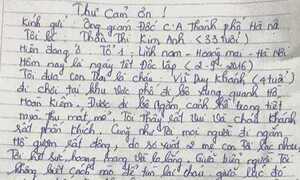 Thư Cảm ơn!
Kính gửi: Ông giám Đốc C.A Thành phố Hà nội
Tôi là: Thân Thị Kim Anh (33 tuổi)
Hiện đang ở Tổ 1, Lĩnh nam - Hoàng mai - Hà Nội.
Hôm nay là ngày tết Độc lập (2-9-2016)
Tôi đưa con trai là cháu Vũ Duy Khánh (4 tuổi)
đi chơi tại khu vực phố đi bộ xung quanh Hồ
Hoàn Kiếm. Được đi bộ ngắm cảnh hồ trong tiết
mùa thu mát mẻ. Tôi thấy rất vui và cháu Khánh
rất phấn khích. Cũng như mọi người đi ngắm
Hồ gươm rất đông, do sơ xuất 2 mẹ con bị lạc nhau,
Tôi rất sợ, hoang mang và lo lắng. Giữa biển người Tôi
không biết cách nào để tìm lại cháu, giữa lúc đó